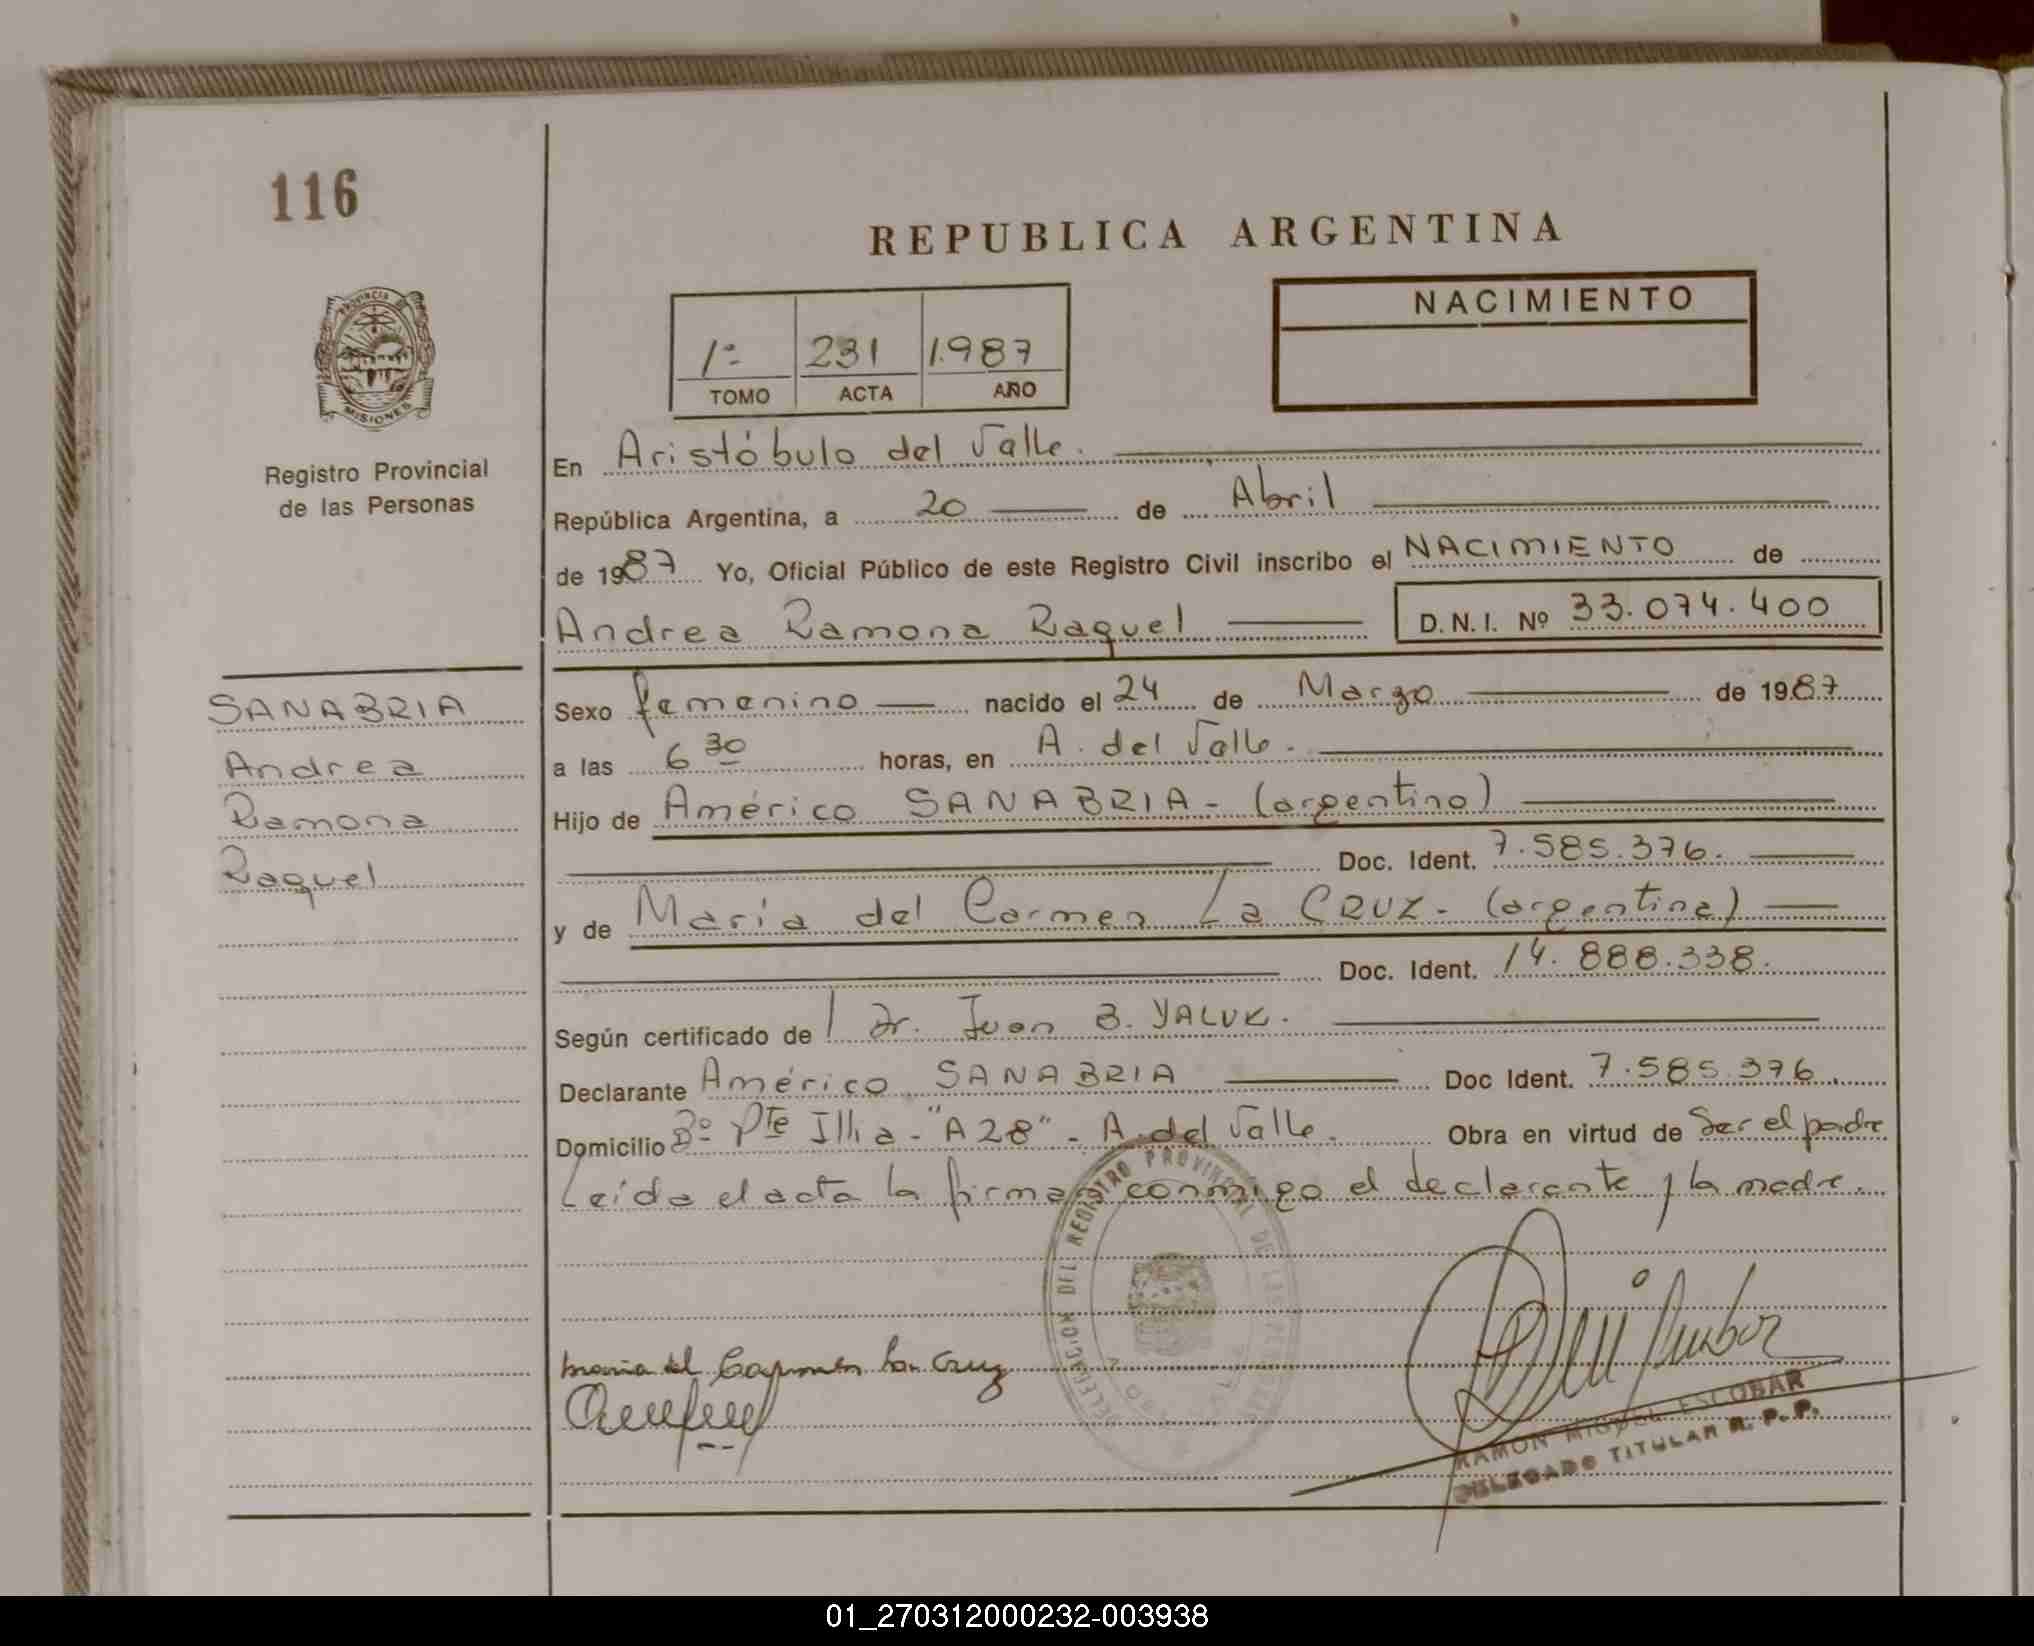 116
REPUBLICA ARGENTINA
NACIMIENTO
1º 231 1.987
TOMO ACTA AÑO
PROVINCIA DE
MISIONES
Registro Provincial
de las Personas
En Aristóbulo del Valle.
República Argentina, a 20 de Abril
de 1987 Yo, Oficial Público de este Registro Civil inscribo el NACIMIENTO de
Andrea Ramona Raquel D.N.I. Nº 33.074.400
SANABRIA
Andrea
Ramona
Raquel
Sexo femenino nacido el 24 de Marzo de 1987
a las 6 30 horas, en A. del Valle.
Hijo de Américo SANABRIA - (argentino)
Doc. Ident. 7.585.376.
y de María del Carmen La CRUZ - (argentina)
Doc. Ident. 14.888.338.
Según certificado de Dr. Juan B. YALUK.
Declarante Américo SANABRIA Doc Ident. 7.585.376.
Domicilio Bº Pte Illia - "A28" - A. del Valle. Obra en virtud de Ser el padre
Leída el acta la firman conmigo el declarante y la madre.
DELEGACION DEL REGISTRO PROVINCIAL DE LAS PERSONAS
maria del Carmen La Cruz
RAMON MIGUEL ESCOBAR
DELEGADO TITULAR R. P. P.
01_270312000232-003938